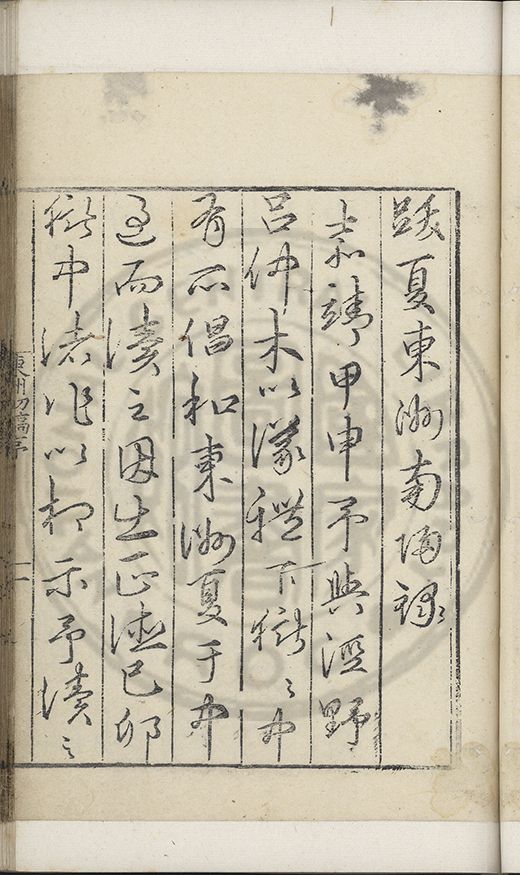 跋夏東洲南歸錄
嘉靖甲申予與涇野
呂仲木以議禮下獄〻中
有所倡和東洲夏于中
過而讀之因出正德己卯
獄中諸作以相示予讀之
東州初稿序
一